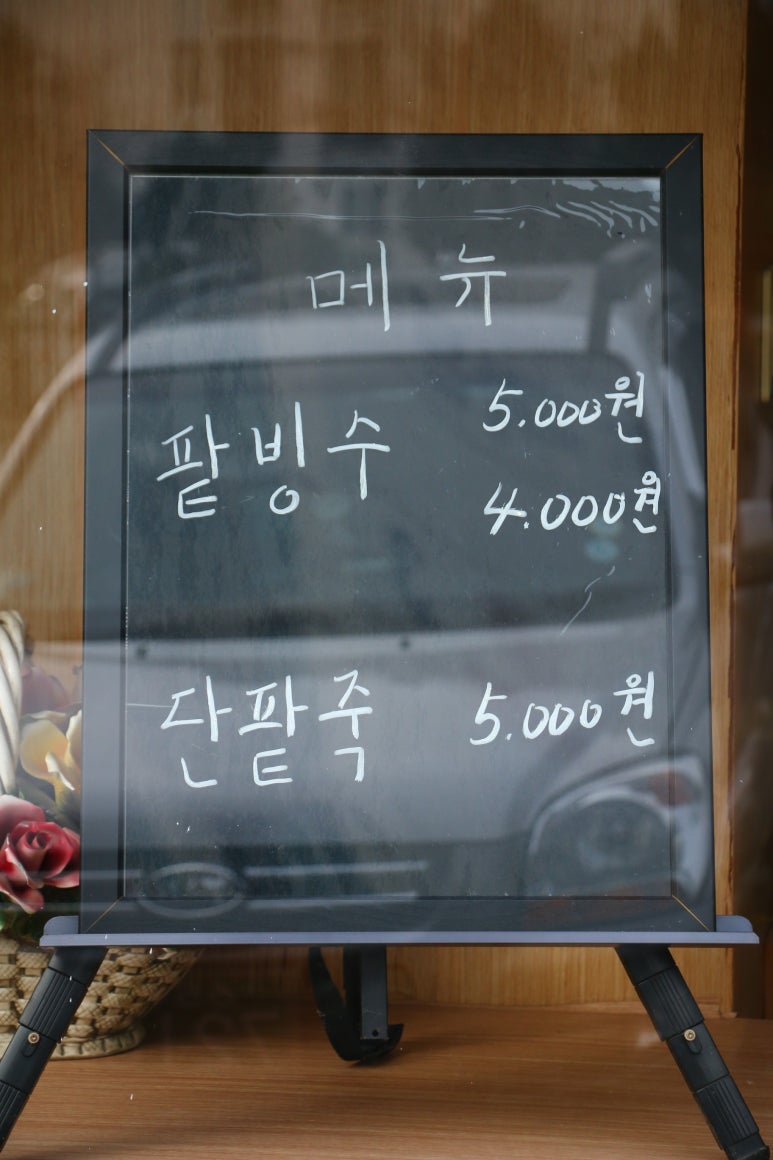 메뉴
팥빙수 5.000원
4.000원
단팥죽 5.000원